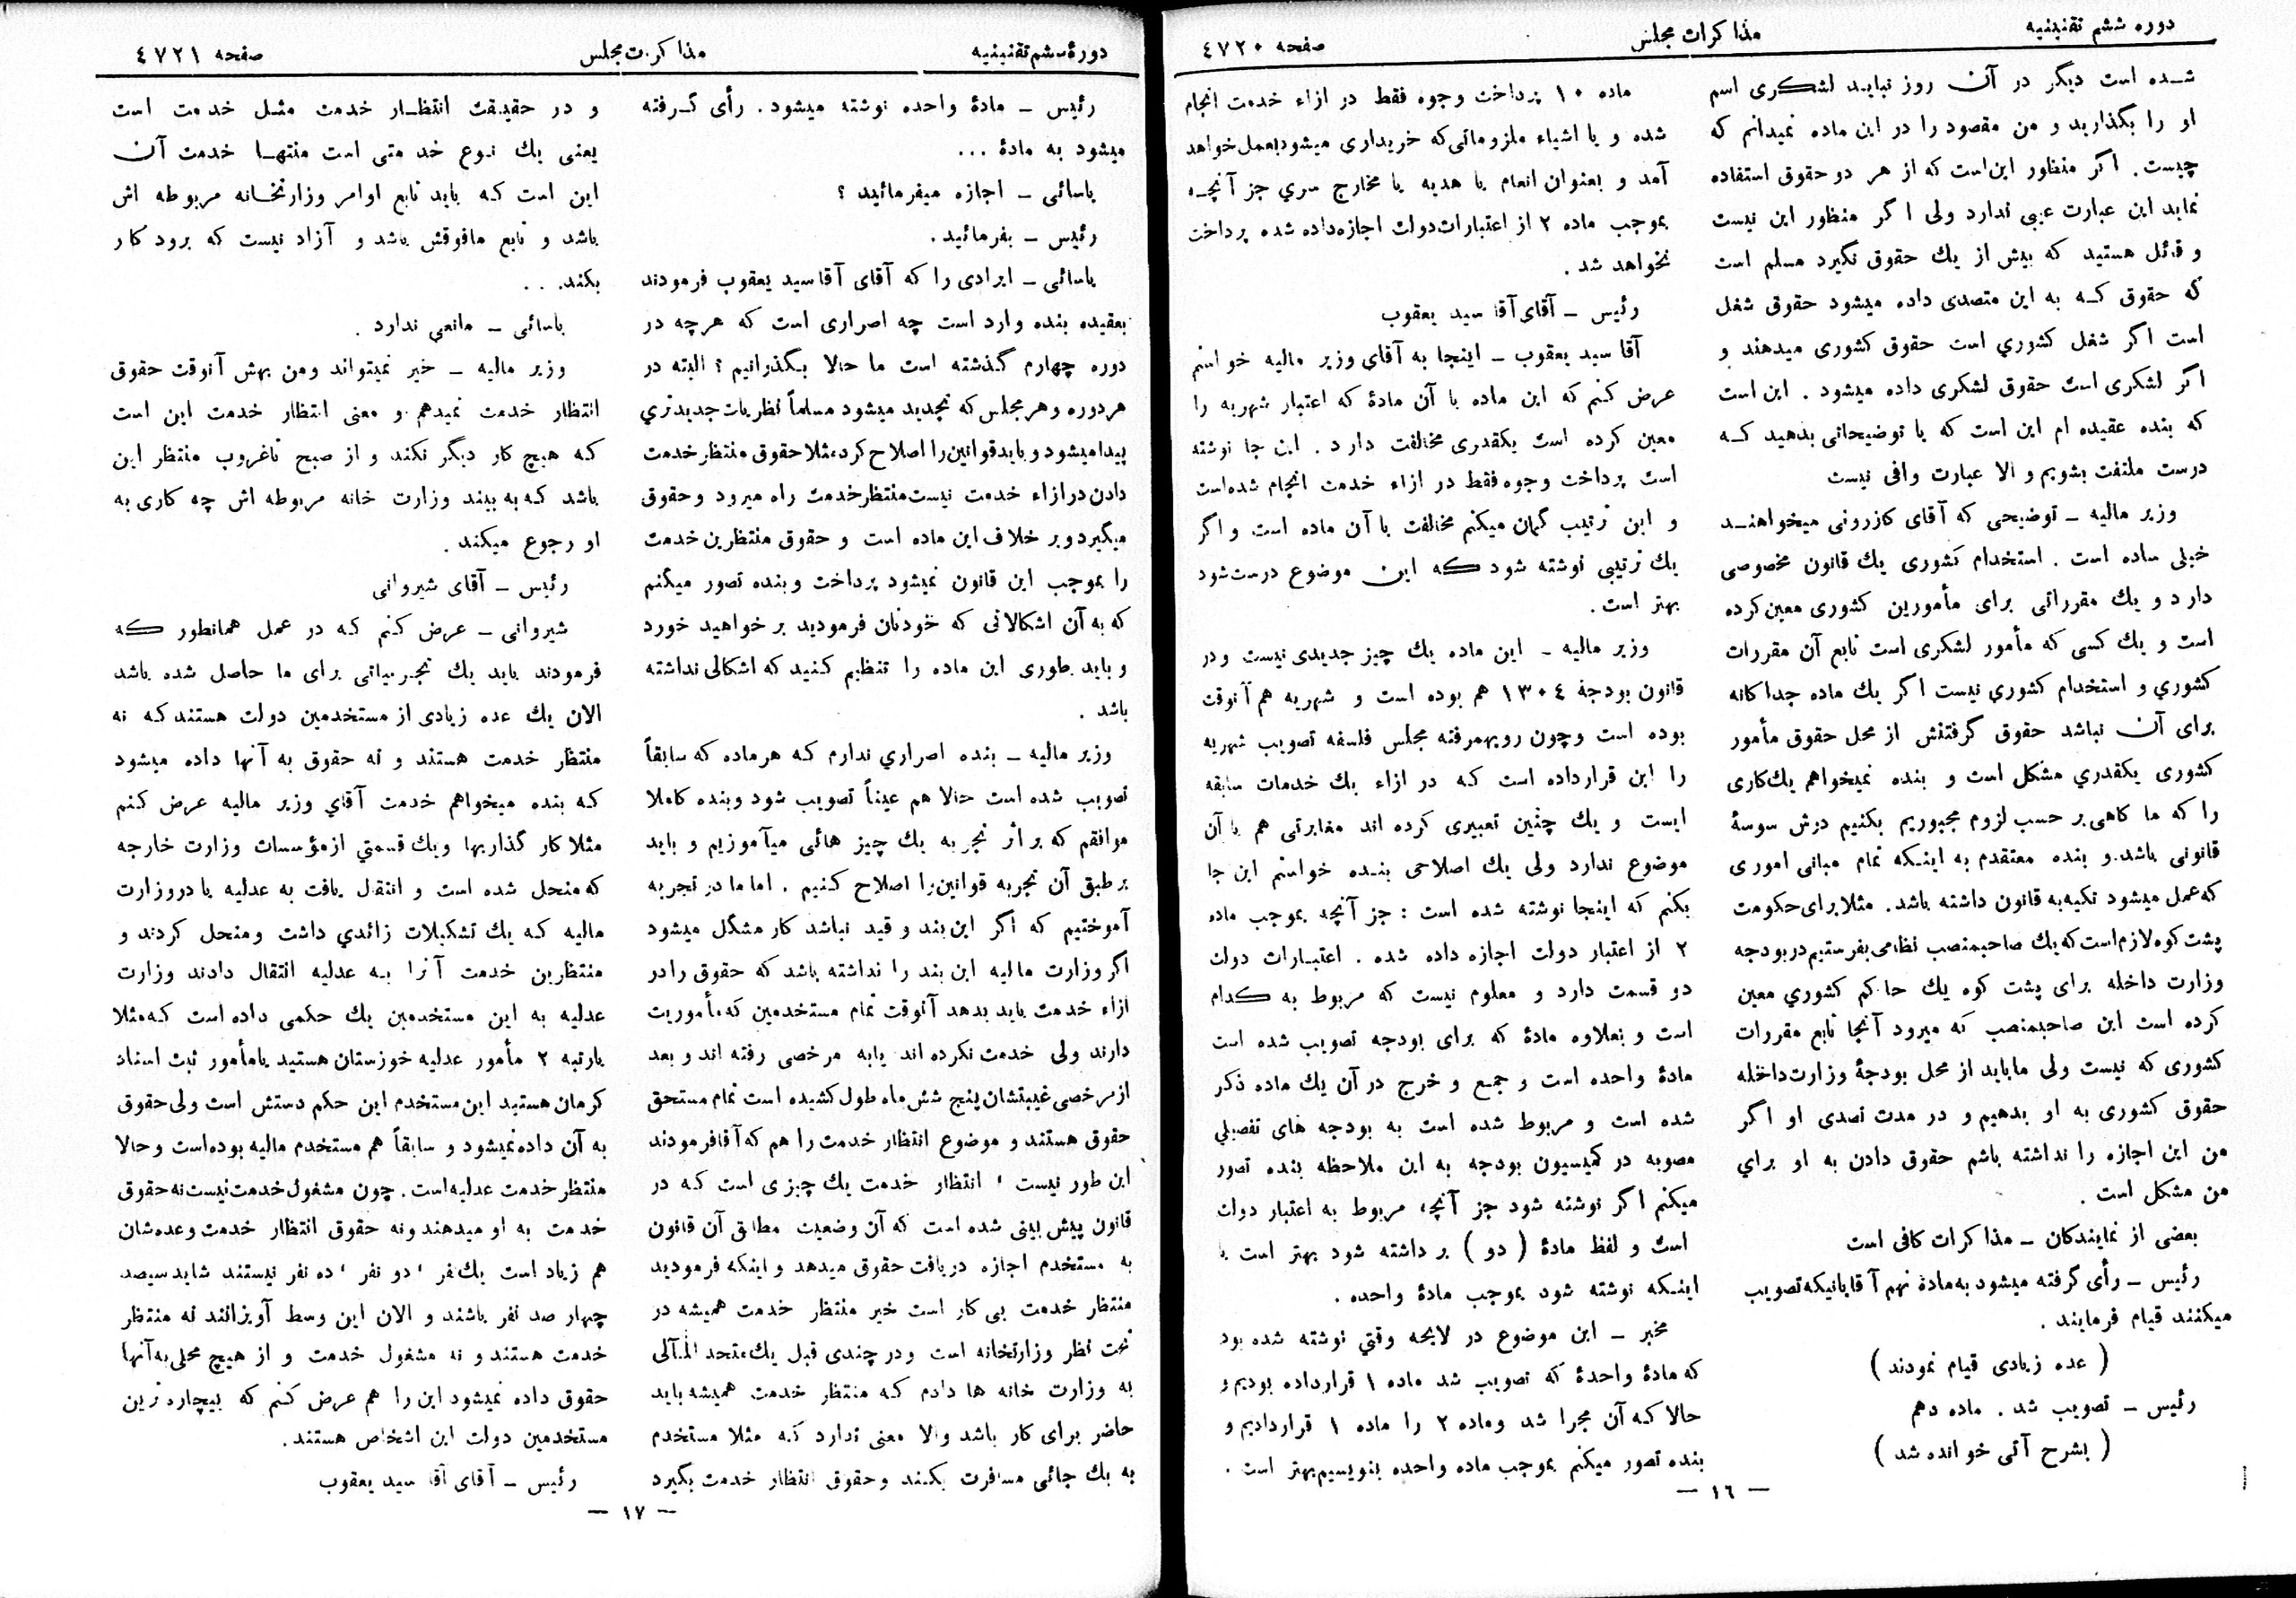 دوره ششم تقنینیه
مذاکرات مجلس
صفحه ٤٧٢٠
شده است دیگر در آن روز نباید لشکری اسم
او را بگذارید و من مقصود را در این ماده نمیدانم که
چیست. اگر منظور این‌است که از هر دو حقوق استفاده
نماید این عبارت عیبی ندارد ولی اگر منظور این نیست
و قائل هستید که بیش از یك حقوق نگیرد مسلم است
که حقوق که به این متصدی داده میشود حقوق شغل
است اگر شغل کشوري است حقوق کشوری میدهند و
اگر لشکری است حقوق لشکری داده میشود . این است
که بنده عقیده ام این است که یا توضیحاتی بدهید که
درست ملتفت بشویم و الا عبارت وافی نیست
وزیر مالیه ـ توضیحی که آقای کازرونی میخواهند
خیلی ساده است . استخدام کشوری یك قانون مخصوصی
دارد و یك مقرراتی برای مأمورین کشوری معین کرده
است و یك کسی که مأمور لشکری است تابع آن مقررات
کشوري و استخدام کشوري نیست اگر یك ماده جداکانه
برای آن نباشد حقوق گرفتنش از محل حقوق مأمور
کشوری یکقدري مشکل است و بنده نمیخواهم یك کاری
را که ما کاهی بر حسب لزوم مجبوریم بکنیم درش سوسهٔ
قانونی باشد و بنده معتقدم به اینکه تمام مبانی اموری
که عمل میشود تکیه به قانون داشته باشد. مثلا برای حکومت
پشت کوه لازم است که یك صاحبمنصب نظامی بفرستیم در بودجه
وزارت داخله برای پشت کوه یك حاکم کشوري معین
کرده است این صاحبمنصب که میرود آنجا تابع مقررات
کشوری که نیست ولی ما باید از محل بودجهٔ وزارت داخله
حقوق کشوری به او بدهیم و در مدت تصدی او اگر
من این اجازه را نداشته باشم حقوق دادن به او براي
من مشکل است .
بعضی از نمایندکان ـ مذاکرات کافی است
رئیس ـ رأی گرفته میشود به مادهٔ نهم آقایانیکه تصویب
میکنند قیام فرمایند .
( عده زیادی قیام نمودند )
رئیس ـ تصویب شد . ماده دهم
( بشرح آتی خوانده شد )
ماده ١٠ پرداخت وجوه فقط در ازاء خدمت انجام
شده و یا اشیاء ملزوماتی که خریداری میشود بعمل خواهد
آمد و بعنوان انعام یا هدیه یا مخارج سري جز آنچه
بموجب ماده ٢ از اعتبارات دولت اجازه داده شده پرداخت
نخواهد شد .
رئیس ـ آقای آقا سید یعقوب
آقا سید یعقوب ـ اینجا به آقای وزیر مالیه خواستم
عرض کنم که این ماده با آن مادهٔ که اعتبار شهریه را
معین کرده است یکقدری مخالفت دارد . این جا نوشته
است پرداخت وجوه فقط در ازاء خدمت انجام شده است
و این ترتیب گمان میکنم مخالفت با آن ماده است و اگر
یك ترتیبی نوشته شود که این موضوع درست شود
بهتر است .
وزیر مالیه ـ این ماده یك چیز جدیدی نیست و در
قانون بودجهٔ ١٣٠٤ هم بوده است و شهریه هم آنوقت
بوده است و چون رویهمرفته مجلس فلسفه تصویب شهریه
را این قرار داده است که در ازاء یك خدمات سابقه
ایست و یك چنین تعبیری کرده اند مغایرتی هم با آن
موضوع ندارد ولی یك اصلاحی بنده خواستم این جا
بکنم که اینجا نوشته شده است : جز آنچه بموجب ماده
٢ از اعتبار دولت اجازه داده شده . اعتبارات دولت
دو قسمت دارد و معلوم نیست که مربوط به کدام
است و بعلاوه مادهٔ که برای بودجه تصویب شده است
مادهٔ واحده است و جمع و خرج در آن یك ماده ذکر
شده است و مربوط شده است به بودجه های تفصیلي
مصوبه در کمیسیون بودجه به این ملاحظه بنده تصور
میکنم اگر نوشته شود جز آنچه مربوط به اعتبار دولت
است و لفظ مادهٔ ( دو ) برداشته شود بهتر است یا
اینکه نوشته شود بموجب مادهٔ واحده .
مخبر ـ این موضوع در لایحه وقتي نوشته شده بود
که مادهٔ واحدهٔ که تصویب شد ماده ١ قرار داده بودیم و
حالا که آن مجرا شد و ماده ٢ را ماده ١ قرار دادیم و
بنده تصور میکنم بموجب ماده واحده بنویسیم بهتر است .
— ١٦ —
دورهٔ ششم تقنینیه
مذاکرات مجلس
صفحه ٤٧٢١
رئیس ـ مادهٔ واحده نوشته میشود . رأی گرفته
میشود به مادهٔ ...
یاسائی ـ اجازه میفرمائید ؟
رئیس ـ بفرمائید .
یاسائی ـ ایرادی را که آقای آقا سید یعقوب فرمودند
بعقیده بنده وارد است چه اصراری است که هرچه در
دوره چهارم گذشته است ما حالا بگذرانیم ؟ البته در
هر دوره و هر مجلس که تجدید میشود مسلماً نظریات جدیدتري
پیدا میشود و باید قوانین را اصلاح کرد، مثلا حقوق منتظر خدمت
دادن در ازاء خدمت نیست منتظر خدمت راه میرود و حقوق
میگیرد و بر خلاف این ماده است و حقوق منتظرین خدمت
را بموجب این قانون نمیشود پرداخت و بنده تصور میکنم
که به آن اشکالاتی که خودتان فرمودید بر خواهید خورد
و باید طوری این ماده را تنظیم کنید که اشکالی نداشته
باشد .
وزیر مالیه ـ بنده اصراري ندارم که هر ماده که سابقاً
تصویب شده است حالا هم عیناً تصویب شود و بنده کاملا
موافقم که بر اثر تجربه یك چیز هائی میآموزیم و باید
بر طبق آن تجربه قوانین را اصلاح کنیم . اما ما در تجربه
آموختیم که اگر این بند و قید نباشد کار مشکل میشود
اگر وزارت مالیه این بند را نداشته باشد که حقوق را در
ازاء خدمت باید بدهد آنوقت تمام مستخدمین که مأموریت
دارند ولی خدمت نکرده اند یا به مرخصی رفته اند و بعد
از مرخصی غیبتشان پنج شش ماه طول کشیده است تمام مستحق
حقوق هستند و موضوع انتظار خدمت را هم که آقا فرمودند
این طور نیست ، انتظار خدمت یك چیزی است که در
قانون پیش بینی شده است که آن وضعیت مطابق آن قانون
به مستخدم اجازه دریافت حقوق میدهد و اینکه فرمودید
منتظر خدمت بی کار است خیر منتظر خدمت همیشه در
تحت نظر وزارتخانه است و در چندی قبل یك متحد المآلی
به وزارت خانه ها دادم که منتظر خدمت همیشه باید
حاضر برای کار باشد والا معنی ندارد که مثلا مستخدم
به یك جائی مسافرت بکند و حقوق انتظار خدمت بگیرد
و در حقیقت انتظار خدمت مثل خدمت است
یعنی یك نوع خدمتی است منتها خدمت آن
این است که باید تابع اوامر وزارتخانه مربوطه اش
باشد و تابع مافوقش باشد و آزاد نیست که برود کار
بکند. . .
یاسائی ـ مانعی ندارد .
وزیر مالیه ـ خیر نمیتواند و من بهش آنوقت حقوق
انتظار خدمت نمیدهم و معنی انتظار خدمت این است
که هیچ کار دیگر نکند و از صبح تا غروب منتظر این
باشد که به بیند وزارت خانه مربوطه اش چه کاری به
او رجوع میکند .
رئیس ـ آقای شیروانی
شیروانی ـ عرض کنم که در عمل همانطور که
فرمودند باید یك تجربیاتی برای ما حاصل شده باشد
الان یك عده زیادی از مستخدمین دولت هستند که نه
منتظر خدمت هستند و نه حقوق به آنها داده میشود
که بنده میخواهم خدمت آقاي وزیر مالیه عرض کنم
مثلا کار گذاریها و یك قسمتي از مؤسسات وزارت خارجه
که منحل شده است و انتقال یافت به عدلیه یا در وزارت
مالیه که یك تشکیلات زائدي داشت و منحل کردند و
منتظرین خدمت آنرا به عدلیه انتقال دادند وزارت
عدلیه به این مستخدمین یك حکمی داده است که مثلا
با رتبه ٢ مأمور عدلیه خوزستان هستید یا مأمور ثبت اسناد
کرمان هستید این مستخدم این حکم دستش است ولی حقوق
به آن داده نمیشود و سابقاً هم مستخدم مالیه بوده است و حالا
منتظر خدمت عدلیه است . چون مشغول خدمت نیست نه حقوق
خدمت به او میدهند و نه حقوق انتظار خدمت و عده شان
هم زیاد است یك نفر ، دو نفر ، ده نفر نیستند شاید سیصد
چهار صد نفر باشند و الان این وسط آویزانند نه منتظر
خدمت هستند و نه مشغول خدمت و از هیچ محلی به آنها
حقوق داده نمیشود این را هم عرض کنم که بیچاره ترین
مستخدمین دولت این اشخاص هستند.
رئیس ـ آقای آقا سید یعقوب
— ١٧ —